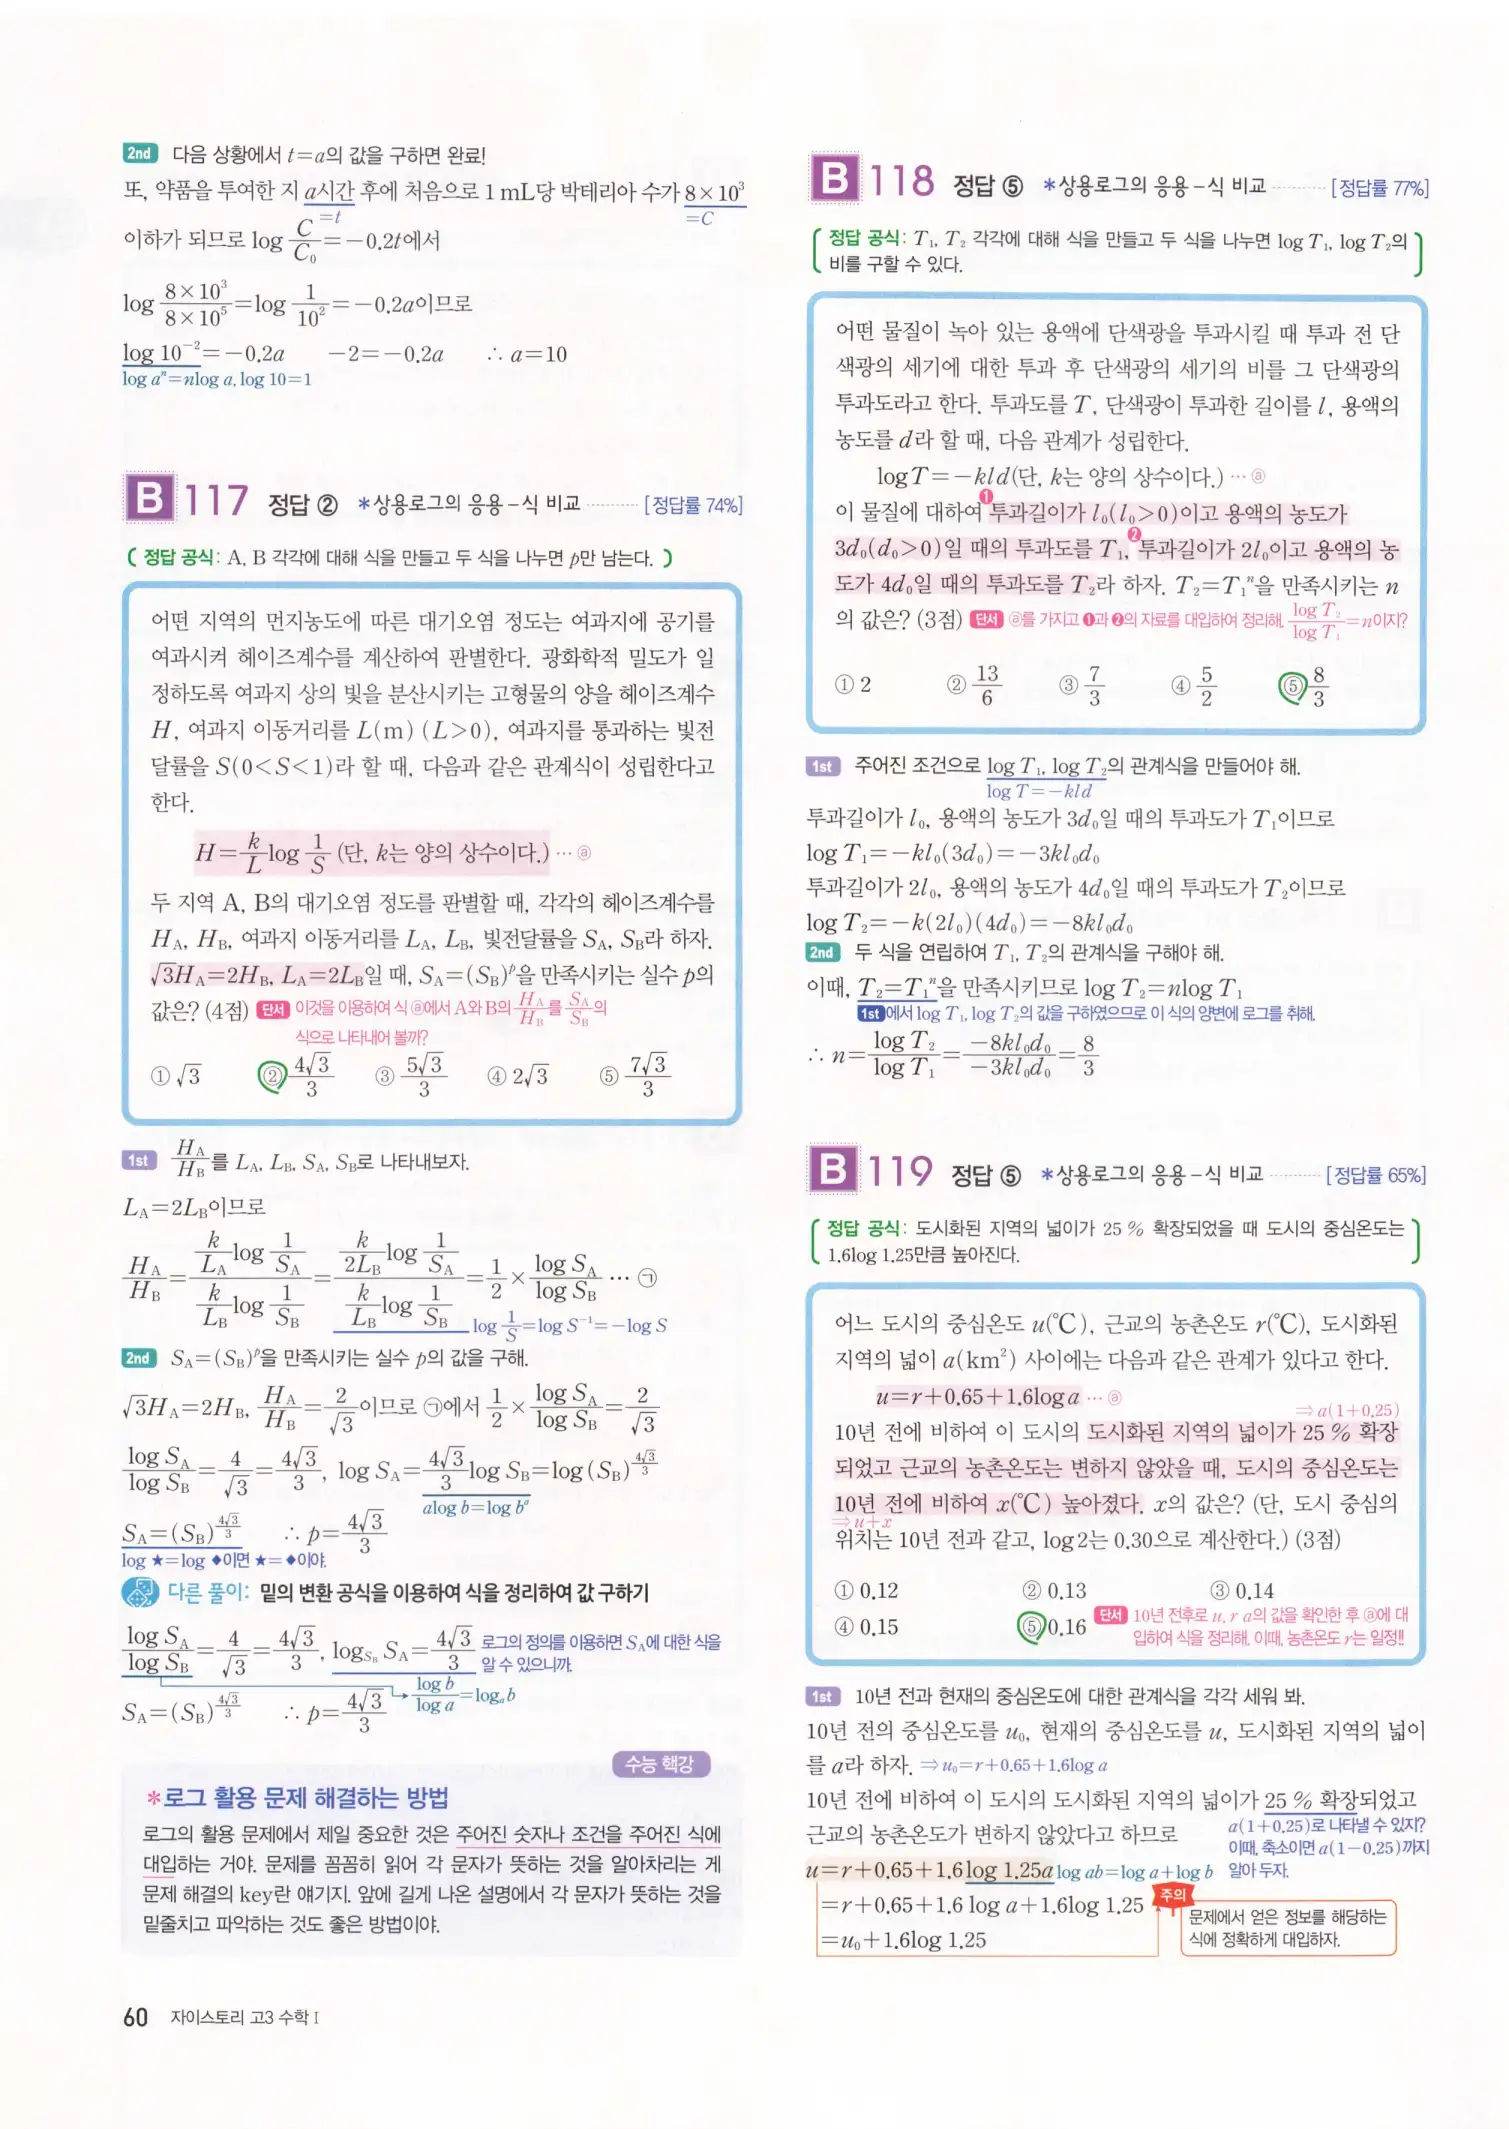 2nd 다음 상황에서 t=a의 값을 구하면 완료!
또, 약품을 투여한 지 a시간 후에 처음으로 1 mL당 박테리아 수가 8×10³
=t =C
이하가 되므로 log C/C₀=-0.2t에서
log (8×10³)/(8×10⁵)=log 1/10²=-0.2a이므로
log 10⁻²=-0.2a -2=-0.2a ∴ a=10
log aⁿ=nlog a, log 10=1
B 117 정답 ② *상용로그의 응용-식 비교 [정답률 74%]
( 정답 공식: A, B 각각에 대해 식을 만들고 두 식을 나누면 p만 남는다. )
어떤 지역의 먼지농도에 따른 대기오염 정도는 여과지에 공기를
여과시켜 헤이즈계수를 계산하여 판별한다. 광화학적 밀도가 일
정하도록 여과지 상의 빛을 분산시키는 고형물의 양을 헤이즈계수
H, 여과지 이동거리를 L(m) (L>0), 여과지를 통과하는 빛전
달률을 S(0<S<1)라 할 때, 다음과 같은 관계식이 성립한다고
한다.
H=k/L log 1/S (단, k는 양의 상수이다.) … ⓐ
두 지역 A, B의 대기오염 정도를 판별할 때, 각각의 헤이즈계수를
H_A, H_B, 여과지 이동거리를 L_A, L_B, 빛전달률을 S_A, S_B라 하자.
√3H_A=2H_B, L_A=2L_B일 때, S_A=(S_B)^p을 만족시키는 실수 p의
값은? (4점) 단서 이것을 이용하여 식 ⓐ에서 A와 B의 H_A/H_B를 S_A/S_B의
식으로 나타내어 볼까?
① √3 ② 4√3/3 ③ 5√3/3 ④ 2√3 ⑤ 7√3/3
1st H_A/H_B를 L_A, L_B, S_A, S_B로 나타내보자.
L_A=2L_B이므로
H_A/H_B=(k/L_A log 1/S_A)/(k/L_B log 1/S_B)=(k/2L_B log 1/S_A)/(k/L_B log 1/S_B)=1/2×log S_A/log S_B … ㉠
log 1/S=log S⁻¹=-log S
2nd S_A=(S_B)^p을 만족시키는 실수 p의 값을 구해.
√3H_A=2H_B, H_A/H_B=2/√3이므로 ㉠에서 1/2×log S_A/log S_B=2/√3
log S_A/log S_B=4/√3=4√3/3, log S_A=4√3/3 log S_B=log (S_B)^(4√3/3)
alog b=log bᵃ
S_A=(S_B)^(4√3/3) ∴ p=4√3/3
log ★=log ◆이면 ★=◆이야.
다른 풀이: 밑의 변환 공식을 이용하여 식을 정리하여 값 구하기
log S_A/log S_B=4/√3=4√3/3, log_(S_B) S_A=4√3/3 로그의 정의를 이용하면 S_A에 대한 식을
알 수 있으니까.
log b/log a=log_a b
S_A=(S_B)^(4√3/3) ∴ p=4√3/3
수능 핵강
*로그 활용 문제 해결하는 방법
로그의 활용 문제에서 제일 중요한 것은 주어진 숫자나 조건을 주어진 식에
대입하는 거야. 문제를 꼼꼼히 읽어 각 문자가 뜻하는 것을 알아차리는 게
문제 해결의 key란 얘기지. 앞에 길게 나온 설명에서 각 문자가 뜻하는 것을
밑줄치고 파악하는 것도 좋은 방법이야.
60 자이스토리 고3 수학 I
B 118 정답 ⑤ *상용로그의 응용-식 비교 [정답률 77%]
정답 공식: T₁, T₂ 각각에 대해 식을 만들고 두 식을 나누면 log T₁, log T₂의
비를 구할 수 있다.
어떤 물질이 녹아 있는 용액에 단색광을 투과시킬 때 투과 전 단
색광의 세기에 대한 투과 후 단색광의 세기의 비를 그 단색광의
투과도라고 한다. 투과도를 T, 단색광이 투과한 길이를 l, 용액의
농도를 d라 할 때, 다음 관계가 성립한다.
log T=-kld(단, k는 양의 상수이다.) … ⓐ
이 물질에 대하여 ❶투과길이가 l₀(l₀>0)이고 용액의 농도가
3d₀(d₀>0)일 때의 투과도를 T₁, ❷투과길이가 2l₀이고 용액의 농
도가 4d₀일 때의 투과도를 T₂라 하자. T₂=T₁ⁿ을 만족시키는 n
의 값은? (3점) 단서 ⓐ를 가지고 ❶과 ❷의 자료를 대입하여 정리해. log T₂/log T₁=n이지?
① 2 ② 13/6 ③ 7/3 ④ 5/2 ⑤ 8/3
1st 주어진 조건으로 log T₁, log T₂의 관계식을 만들어야 해.
log T=-kld
투과길이가 l₀, 용액의 농도가 3d₀일 때의 투과도가 T₁이므로
log T₁=-kl₀(3d₀)=-3kl₀d₀
투과길이가 2l₀, 용액의 농도가 4d₀일 때의 투과도가 T₂이므로
log T₂=-k(2l₀)(4d₀)=-8kl₀d₀
2nd 두 식을 연립하여 T₁, T₂의 관계식을 구해야 해.
이때, T₂=T₁ⁿ을 만족시키므로 log T₂=nlog T₁
1st에서 log T₁, log T₂의 값을 구하였으므로 이 식의 양변에 로그를 취해.
∴ n=log T₂/log T₁=-8kl₀d₀/-3kl₀d₀=8/3
B 119 정답 ⑤ *상용로그의 응용-식 비교 [정답률 65%]
정답 공식: 도시화된 지역의 넓이가 25 % 확장되었을 때 도시의 중심온도는
1.6log 1.25만큼 높아진다.
어느 도시의 중심온도 u(℃), 근교의 농촌온도 r(℃), 도시화된
지역의 넓이 a(km²) 사이에는 다음과 같은 관계가 있다고 한다.
u=r+0.65+1.6log a … ⓐ
⇒a(1+0.25)
10년 전에 비하여 이 도시의 도시화된 지역의 넓이가 25 % 확장
되었고 근교의 농촌온도는 변하지 않았을 때, 도시의 중심온도는
10년 전에 비하여 x(℃) 높아졌다. x의 값은? (단, 도시 중심의
⇒u+x
위치는 10년 전과 같고, log 2는 0.30으로 계산한다.) (3점)
① 0.12 ② 0.13 ③ 0.14
④ 0.15 ⑤ 0.16 단서 10년 전후로 u, r a의 값을 확인한 후 ⓐ에 대
입하여 식을 정리해. 이때, 농촌온도 r는 일정!!
1st 10년 전과 현재의 중심온도에 대한 관계식을 각각 세워 봐.
10년 전의 중심온도를 u₀, 현재의 중심온도를 u, 도시화된 지역의 넓이
를 a라 하자. ⇒u₀=r+0.65+1.6log a
10년 전에 비하여 이 도시의 도시화된 지역의 넓이가 25 % 확장되었고
근교의 농촌온도가 변하지 않았다고 하므로
a(1+0.25)로 나타낼 수 있지?
이때, 축소이면 a(1-0.25)까지
알아 두자.
u=r+0.65+1.6log 1.25a log ab=log a+log b
=r+0.65+1.6 log a+1.6log 1.25
=u₀+1.6log 1.25
주의
문제에서 얻은 정보를 해당하는
식에 정확하게 대입하자.